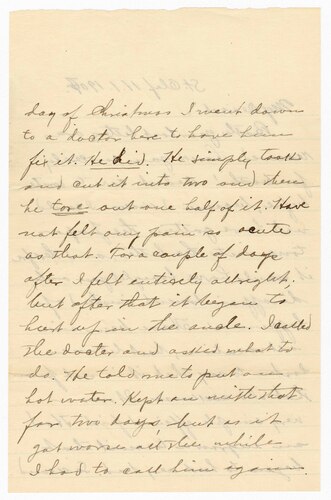 day of Christmas I went down
to a doctor here to have him
fix it. He did. He simply took
and cut it into two and then
he tore out one half of it. Have
not felt any pain so acute
as that. For a couple of days
after I felt entirely allright,
but after that it began to
hurt up in the ancle. I called
the doctor and asked what to
do. He told me to put on
hot water. Kept on with that
for two days, but as it
got worse all the while
I had to call him again.